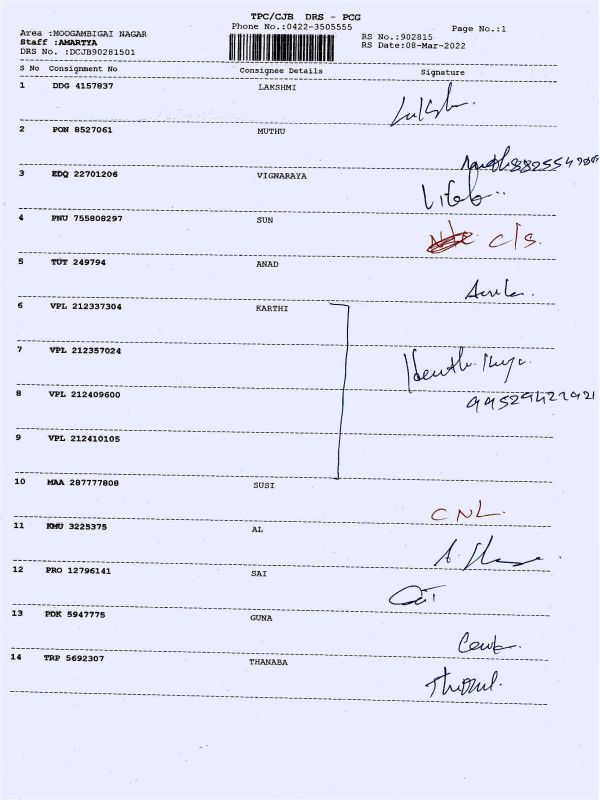 TPC/CJB DRS - PCG
Phone No.:0422-3505555
Page No.:1
Area :MOOGAMBIGAI NAGAR
Staff :AMARTYA
DRS No. :DCJB90281501
RS No.:902815
RS Date:08-Mar-2022
S No Consignment No Consignee Details Signature
1 DDG 4157837 LAKSHMI
2 PON 8527061 MUTHU
3 EDQ 22701206 VIGNARAYA
4 PNU 755808297 SUN
c/s.
5 TUT 249794 ANAD
6 VPL 212337304 KARTHI
7 VPL 212357024
8 VPL 212409600
9 VPL 212410105
10 MAA 287777808 SUSI
CNL.
11 KMU 3225375 AL
12 PRO 12796141 SAI
13 PDK 5947775 GUNA
14 TRP 5692307 THANABA